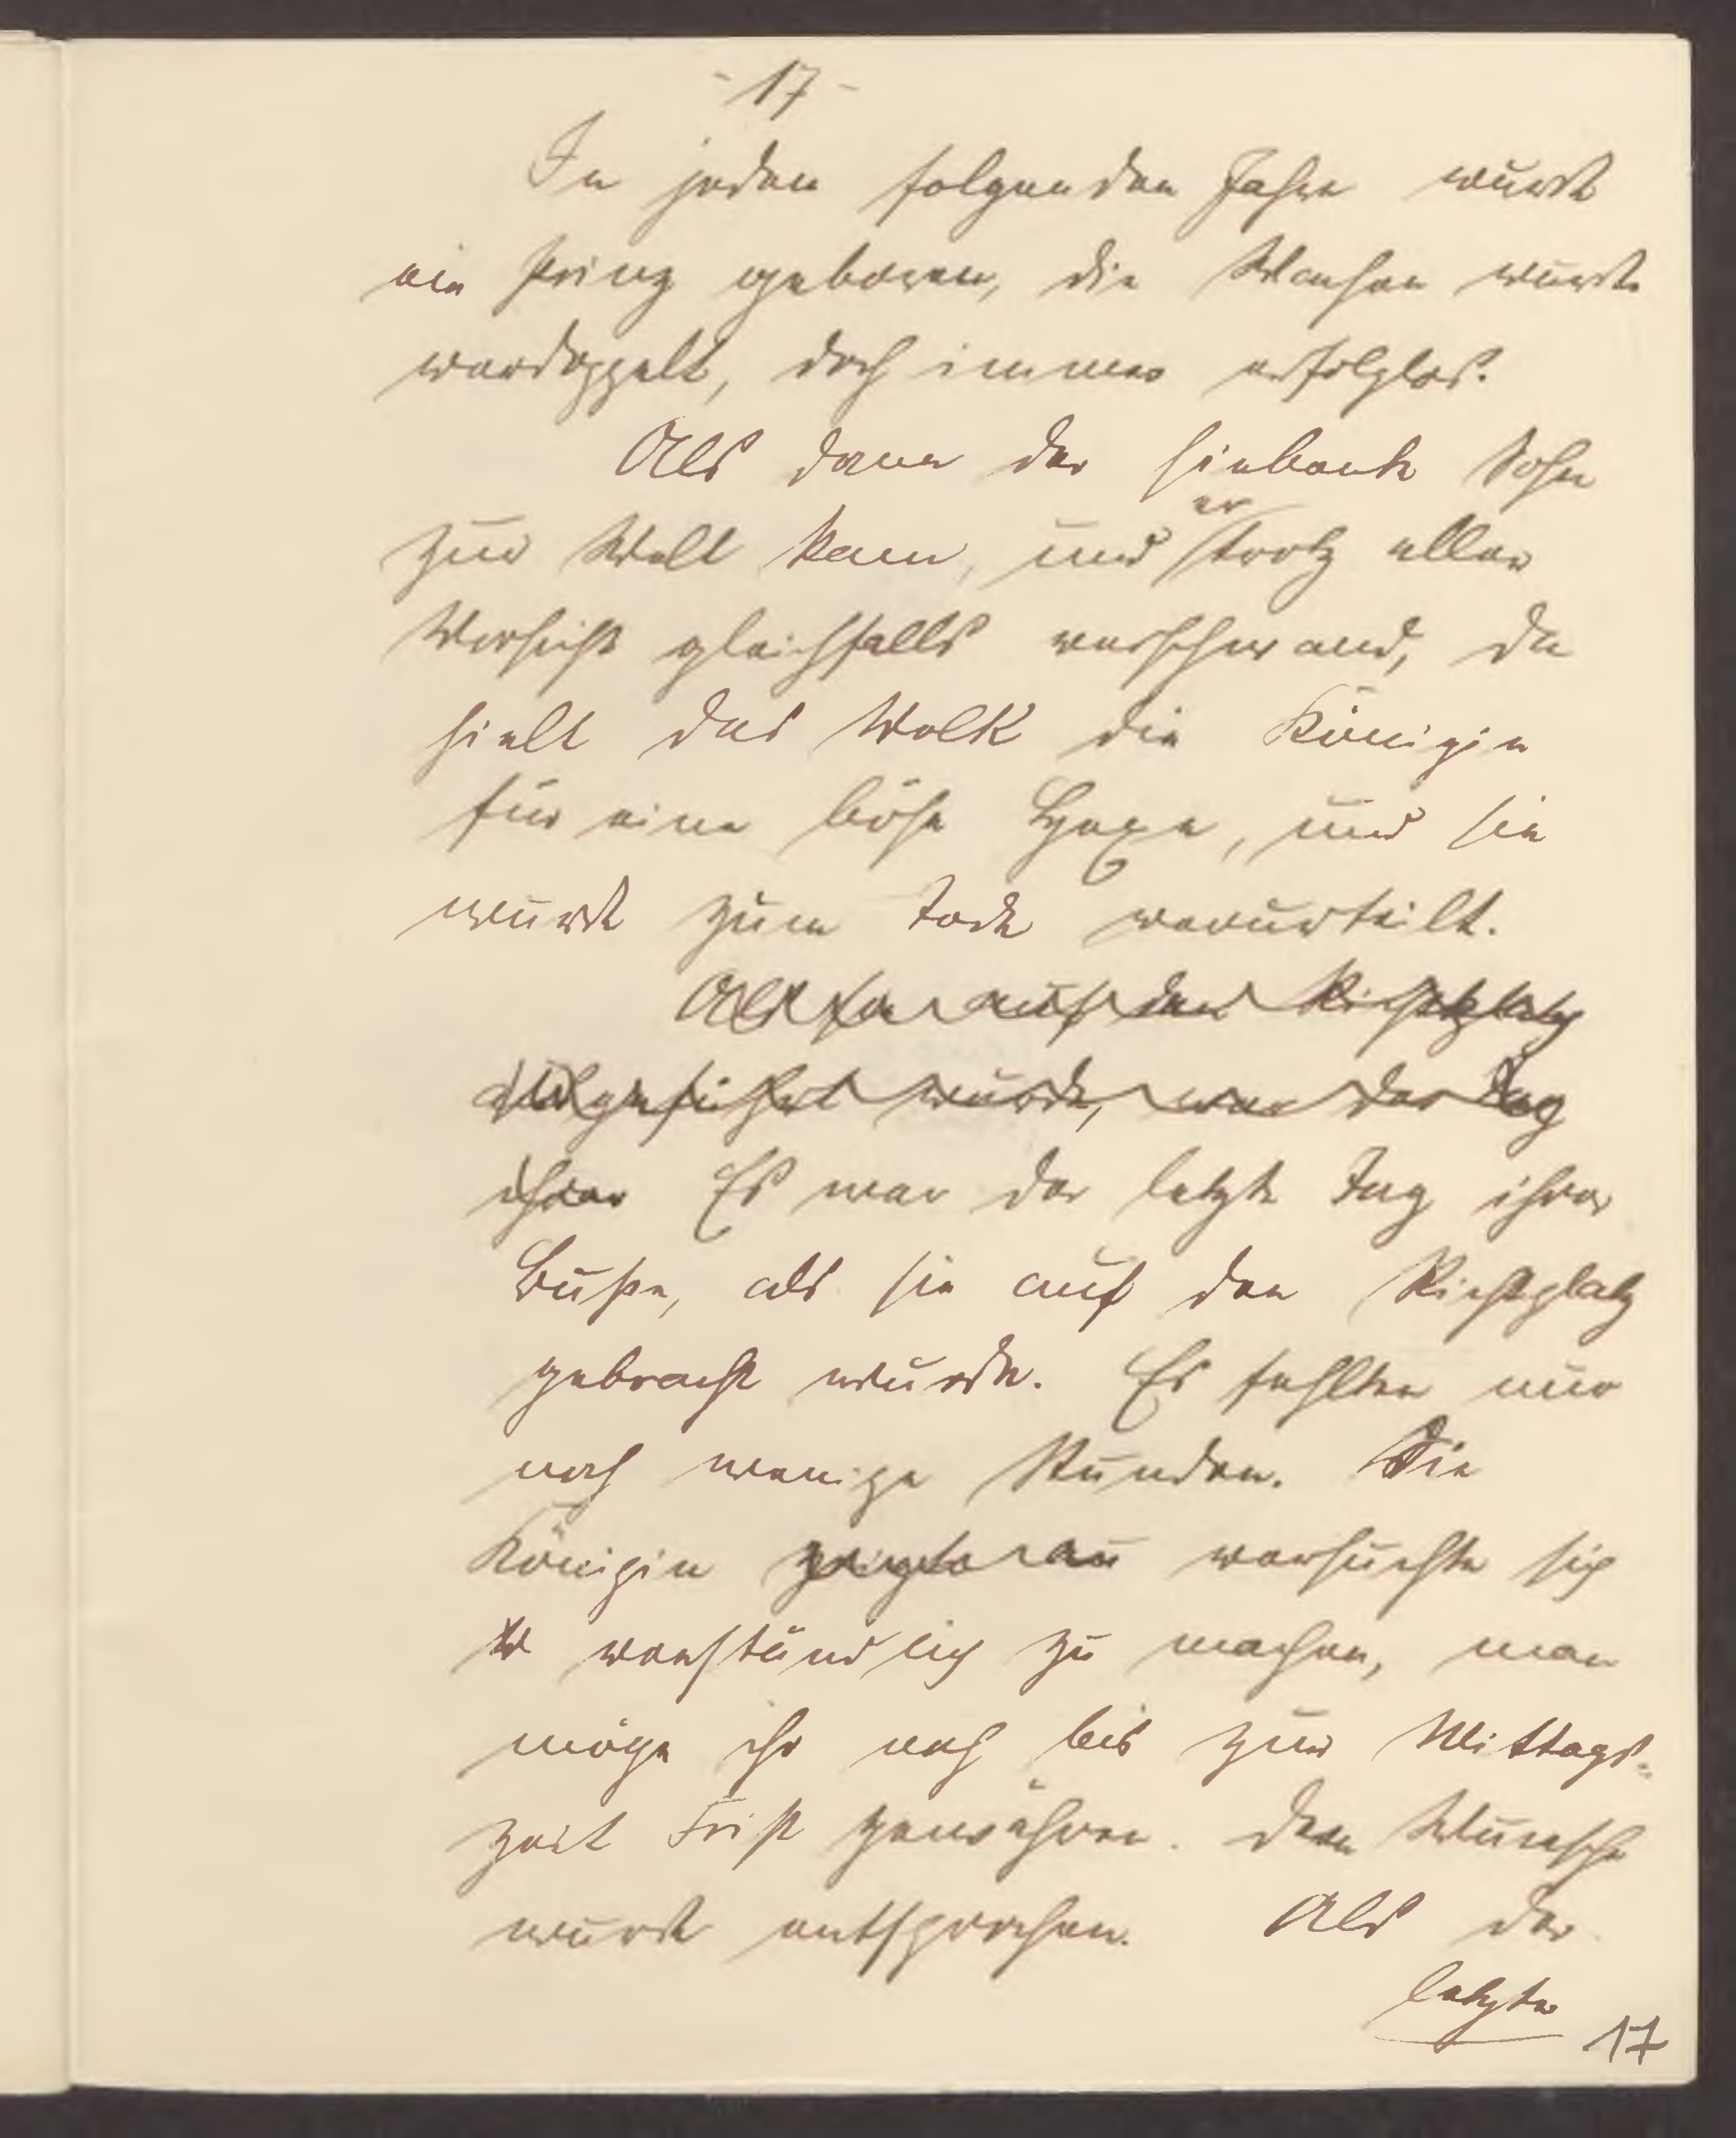 - 17 -
In jeden folgenden Jahre wurde
ein Prinz geboren, die Wachen wurde
verdoppelt, doch immer erfolglos.
Als dann der siebente Sohn
zur Welt kam, und er trotz aller
Vorsicht gleichfalls verschwand, da
hielt das Volk die Königin
für eine böse Hexe, und sie
wurde zum Tode verurteilt.
Als sie auf den Richtplatz
geführt wurde, war der Tag
ihrer Es war der letzte Tag ihrer
Buße, als sie auf den Richtplatz
gebracht wurde. Es fehlten nur
noch wenige Stunden. Die
Königin versuchte sich
verständlich zu machen, man
möge ihr noch bis zur Mittags-
zeit Frist gewähren. Dem Wunsche
wurde entsprochen. Als der
letzte
17